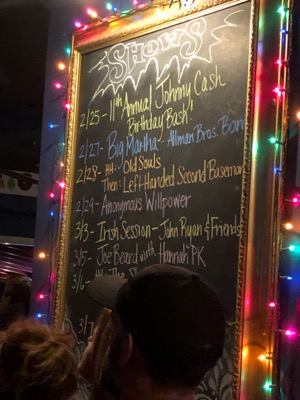 SHOWS
2/25- 11th Annual Johnny Cash
Birthday Bash!
2/27- Big Martha - Allman Bros.
2/28- Old Souls
Then: Left Handed Second Baseman
2/29- Anonymous Willpower
3/3- Irish Session - John Ryan & Friends
3/5- Joe Beard with Hannah PK
3/6
3/7